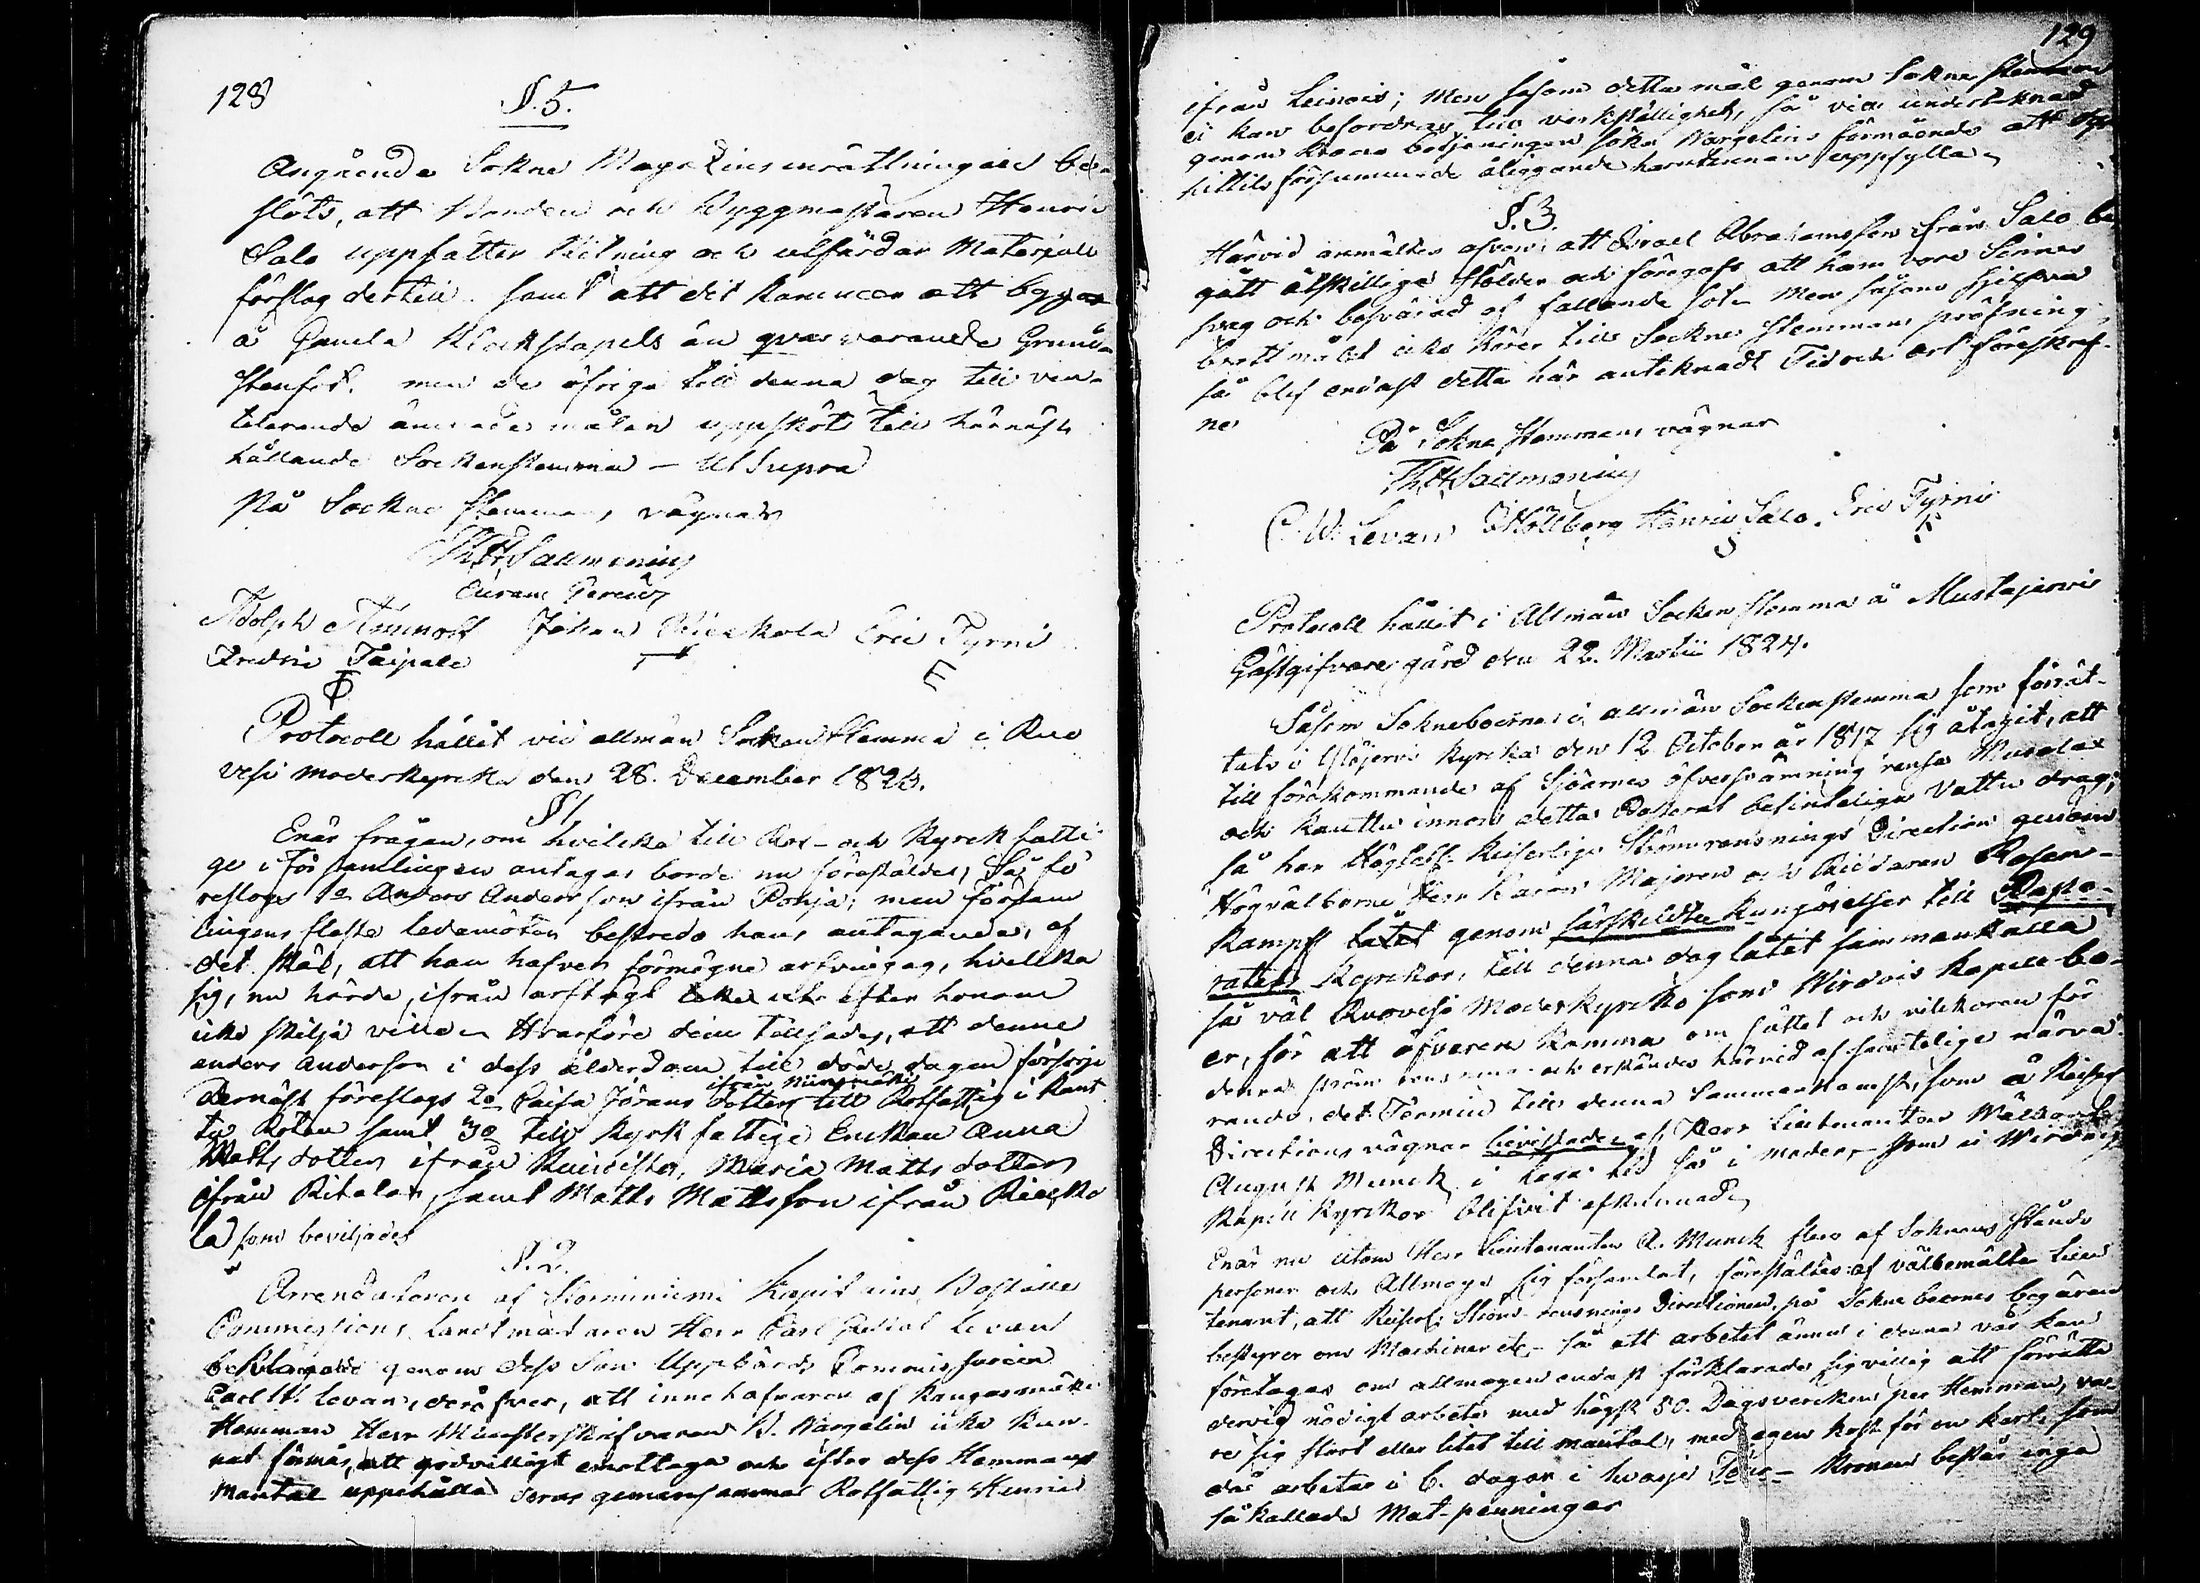 128
§. 5.
Angående Sokne Magazins inrättningen be-
slöts, att Bonden och Byggmästaren Henric
Salo uppsätter Ritning och utfärdar Materjale
förslag dertill samt att det kommer att byggas
å Gamla Klockstapels än qvarvarande Grund
stenfot. men de öfriga till denna dag till ven-
tilerande ämnade målen uppsköts till härnäst
hållande Sockenstemma – Ut Supra
På Sockne Stemmans vägnar
Th. H. Sallmenius
Adolph Johan Eric Tyrni
Fredric Taipale
Protocoll hållit vid allmän Socken Stemma i Ruo
vesi moderkyrcka den 28. December 1823.
§ 1.
Enär frågan, om hvilcka till Rot- och Kyrck fatti-
ge i Församlingen antagas borde nu föreställdes, Så fö
reslogs 1o Anders Andersson ifrån Pohja; men Försam
lingens fleste ledamöter bestredo hans antagande, af
det skäl, att han hafver förmögne arfvingar, hvilka
sig, nu hörde, ifrån arftagt efter honom
icke skilja ville Hvarföre dem tillsades, att denne
anders Anderson i dess ålderdom till döde dagar försörja
ifrån
Dernäst föreslogs 2o Caisa Jörans dotter till Rotfattig i Kaut
tu Roten samt 3o till kyrkfattige Enckan Anna
Matts dotter ifrån Maria Matts dotter
ifrån Ritalan, samt Matts Mattsson ifrån Rieko
la som beviljades
§. 2.
Arrendatoren af Storminiemi Kapitains Boställe
Commissions Landtmätaren Herr Carl Levan
beklagade genom dess Son Uppbörds Commissarien
Carl W. Levan, deröfver, att innehafvaren af Kangasmäki
Hemman Herr Mönsterskrifvaren B. Wargelin icke kun-
nat förmås, att godvilligt emottaga och efter dess Hemmans
mantal uppehålla deras gemensamma Rotfattig Henric
129
ifrån Leinois; Men såsom detta mål genom Sokne stemman
ej kan befordras till verkställighet, så vill undertecknad
genom Krono betjeningen söka Wargelins förmående att
hittils försummade åliggande härutinnan uppfylla
§. 3.
Härvid anmältes äfven att Israel Abrahamsson från Salo be
gått åtskillige stölder och föregafs att han vore Sinnes
svag och besvärad af fallande sot. Men såsom sjelfva
brottmålet icke hörer till Sockne stemmans pröfning
så blef endast detta här anteknadt Tid och ort föreskref-
ne
På Sokne stemmans vägnar
Th. H. Sallmenius
C. W. Levan Hollberg Henric Salo. Eric Tyrni
Protocoll hållit i Allmän Socken stemma å Mustajervi
Gästgifvare gård den 22. Martii 1824.
Såsom Sokneboerne i allmän Sockenstemma som förrät-
tats i Ylöjervi kyrcka den 12 October år 1817 sig åtagit, att
till förekommande af Sjöarnes öfversvämning rensa Murole
och Kauttu innom detta Pastorat befinteliga Vattu drag;
så har Höglofl. Keiserlige Strömrensnings Direction genom
Högvälborne Herr Baron Majoren och Riddaren Rosen-
kampff låtit genom särskildte kungörelser till Pasto-
ratets kyrkor, till denna dag låtit sammankalla
så väl Ruovesi Moderkyrcko som Wirdois Kapell bo-
er, för att öfverenskomma om sättet och vilckoren för
denna ström rensning och erkändes härvid af samtelige närva-
rande, det Termin till denna Sammankomst, som å Keiserl.
Directions vägnar bevistades af Herr Lieutenanten Wälborne
August Munck i laga tid så i Moder- som i Wirdois
Kapell kyrkor blifvit afkunnad
Enär nu utom Herr Lieutenanten A. Munck flere af Soknens stånds
personer och Allmoge sig församlat, föreställdes af välbemälte Lieu
tenant, att Keiserl. Ström-rensnings Directionen, på Sokneboernes begäran
bestyrer om Machiner etc. så att arbetet ännu i denna vår kan
företagas om allmogen endast förklarade sig villig att förrätta
dervid nödigt arbete med högst 50. Dagsvercken per Hemman, va-
re sig stort eller litet till mantal, med egen kost för en karl som
då arbetar i 6. dagar i hvarje Tour – Kronan består inga
så kallade Mat-penningar